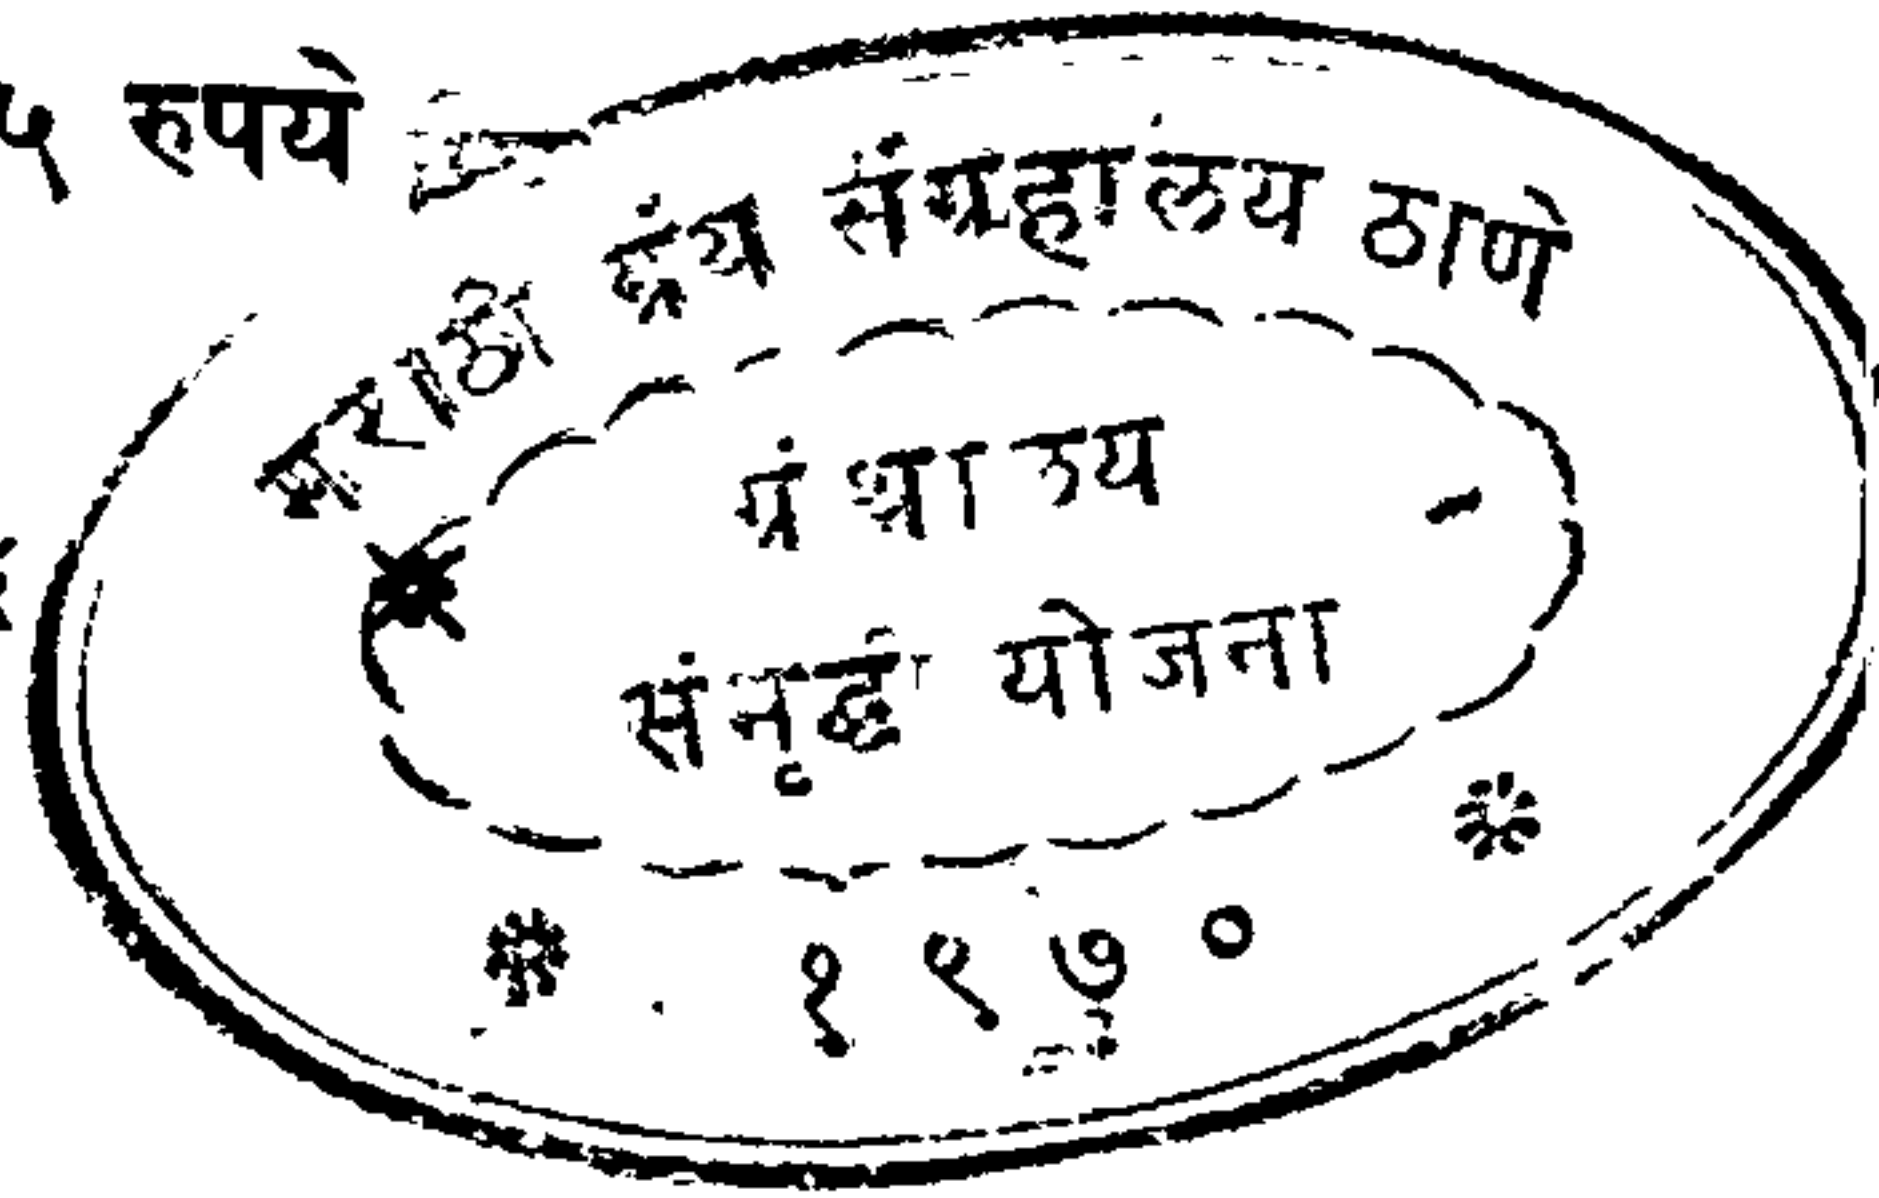 ५ रुपये
मराठी ग्रंथ संग्रहालय ठाणे
ग्रंथालय
संमृद्धी योजना
१९७०